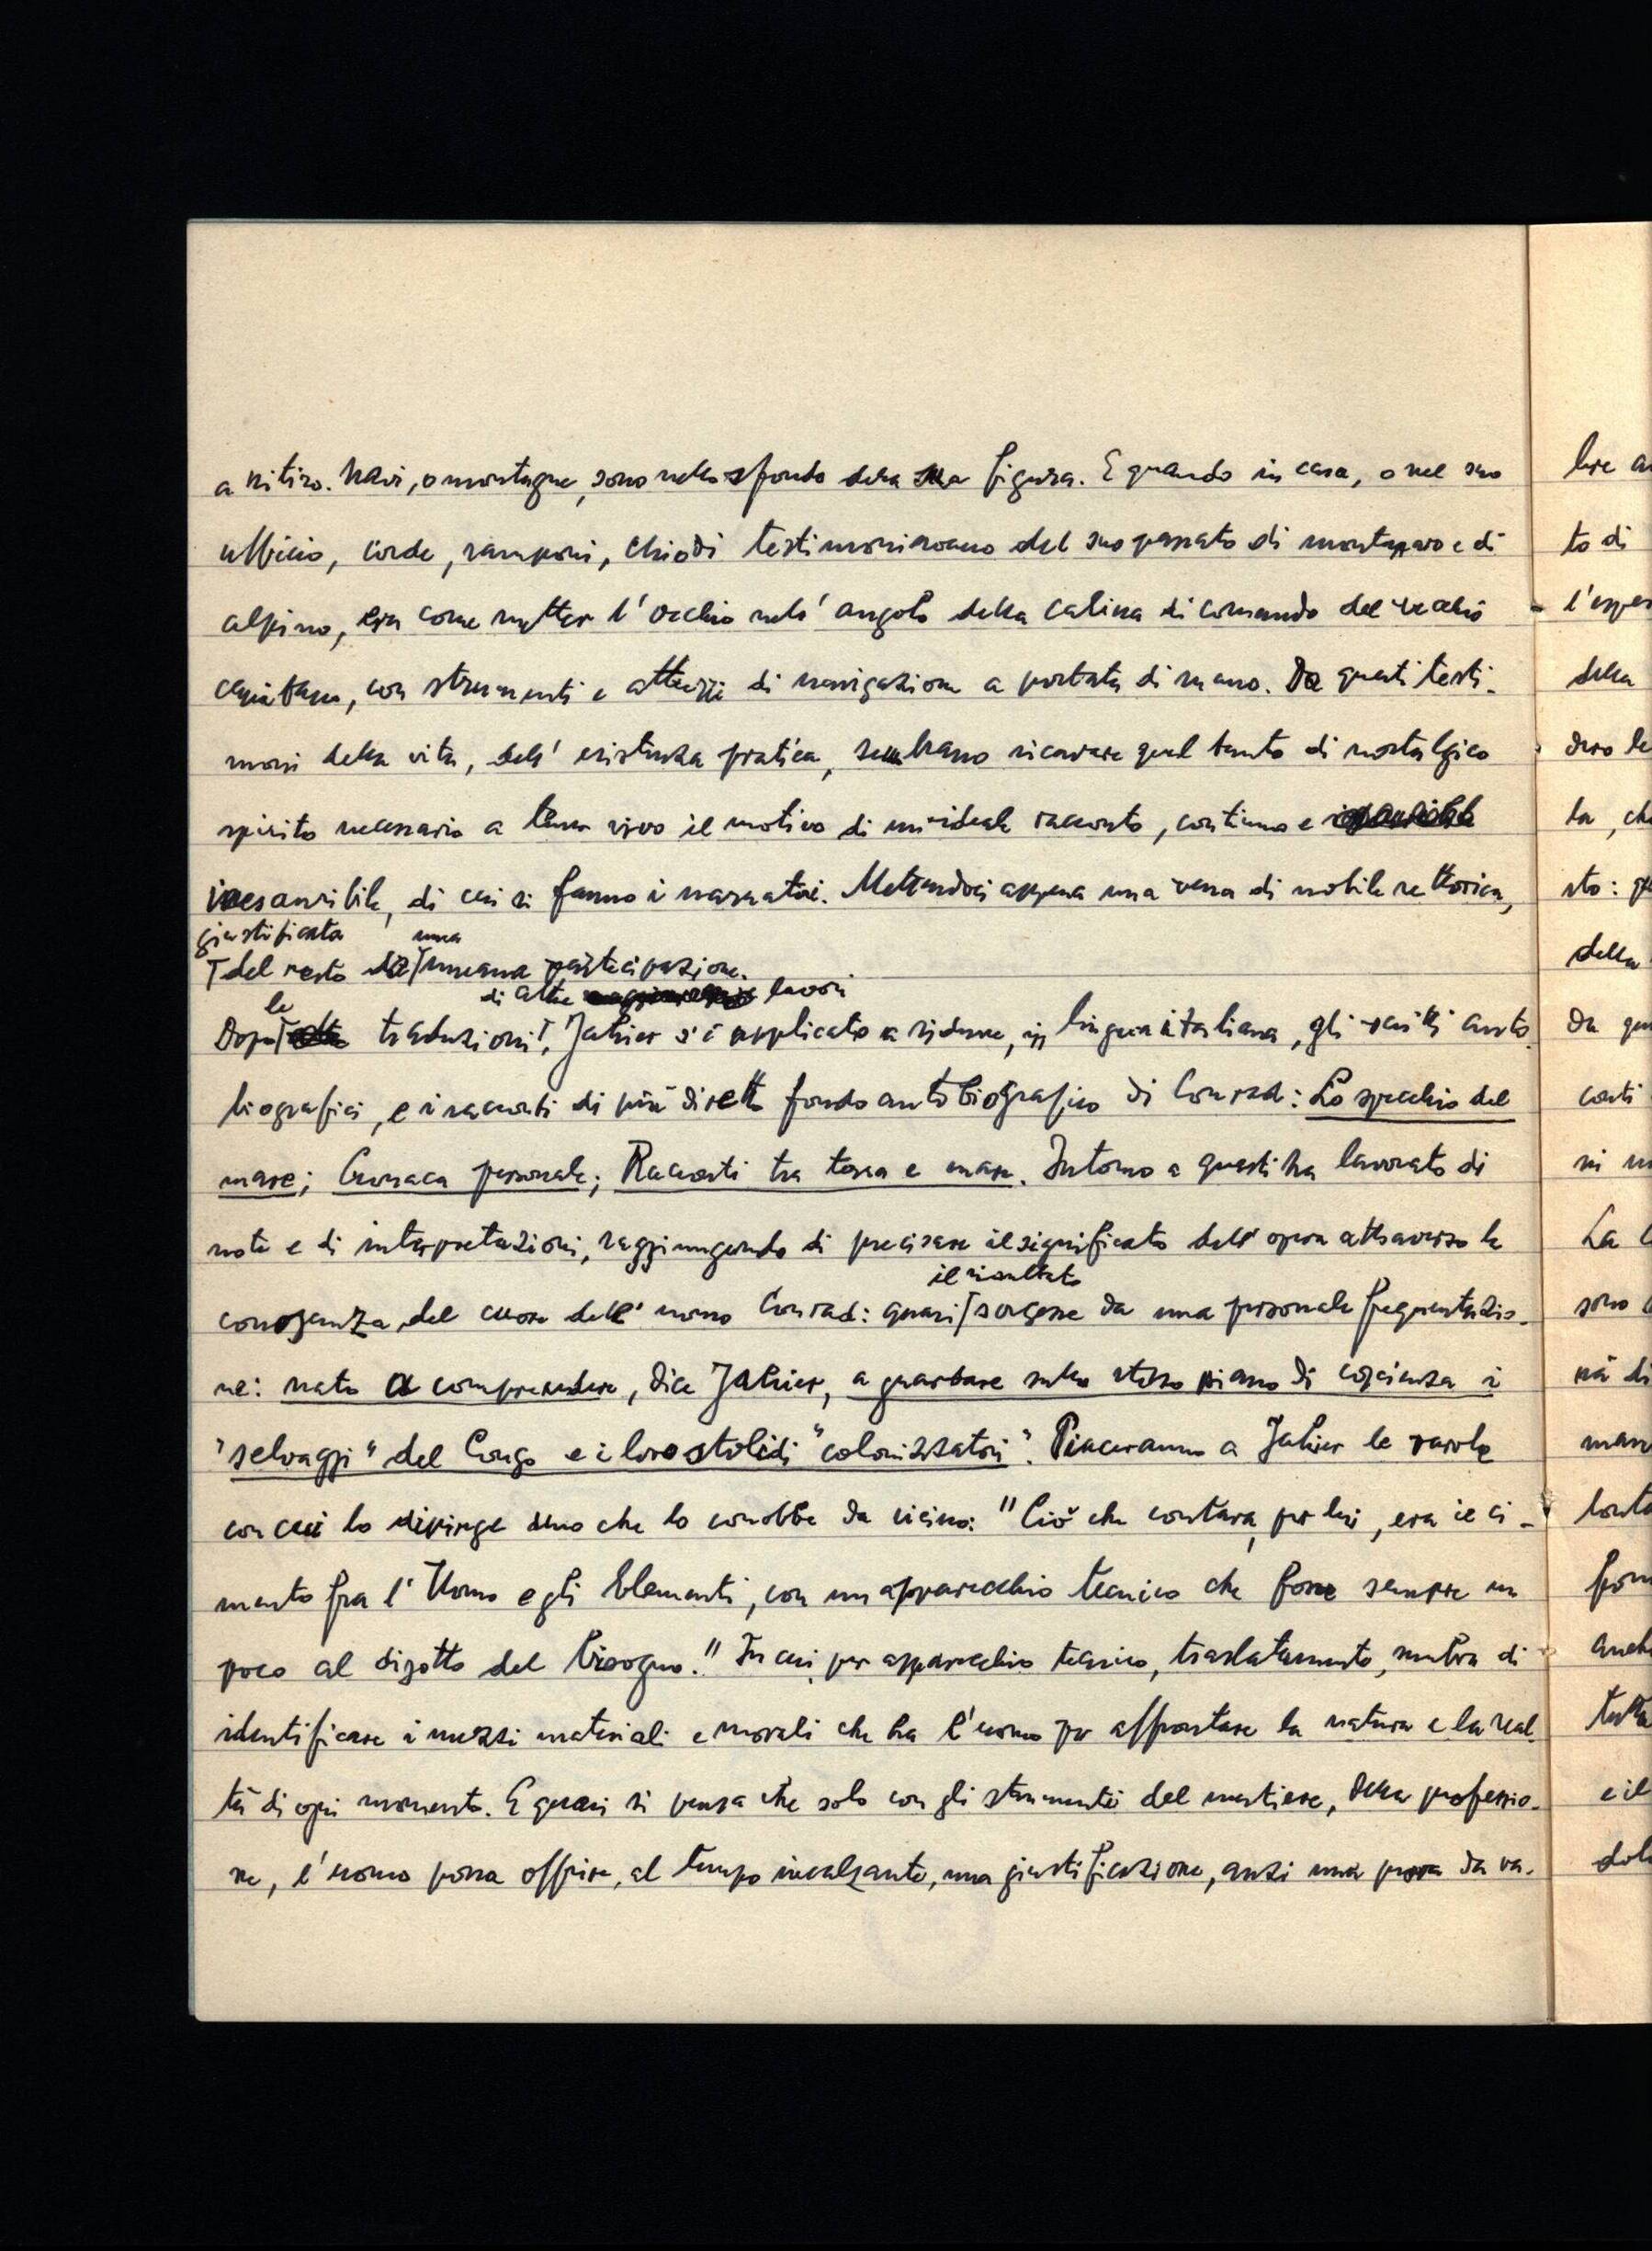 a ritiro. Navi, o montagne, sono nello sfondo della sua figura. E quando in casa, o nel suo
ufficio, corde, ramponi, chiodi testimoniavano del suo passato di montanaro e di
alpino, era come metter l'occhio nell'angolo della cabina di comando del vecchio
capitano, con strumenti e attrezzi di navigazione a portata di mano. Da questi testi-
moni della vita, dell'esistenza pratica, sembrano ricavare quel tanto di nostalgico
spirito necessario a tener vivo il motivo di un'ideale racconto, continuo e
inesauribile, di cui si fanno i narratori. Mettendoci appena una vena di nobile rettorica,
giustificata una
del resto da umana partecipazione.
le di altri lavori
Dopo traduzioni, Jahier s'è applicato a ridurre, in lingua italiana, gli scritti auto
biografici, e i racconti di più diretto fondo autobiografico di Conrad: Lo specchio del
mare; Cronaca personale; Racconti tra terra e mare. Intorno a questi ha lavorato di
note e di interpretazioni, raggiungendo di precisare il significato dell'opera attraverso la
il risultato
conoscenza del cuore dell'uomo Conrad: quasi sorgesse da una personale frequentazio-
ne: nato a comprendere, dice Jahier, a guardare sullo stesso piano di coscienza i
"selvaggi" del Congo e i loro stolidi "colonizzatori". Piaceranno a Jahier le parole
con cui lo dipinge uno che lo conobbe da vicino: "Ciò che contava, per lui, era il ci-
mento fra l'Uomo e gli Elementi, con un apparecchio tecnico che fosse sempre un
poco al disotto del bisogno." In cui, per apparecchio tecnico, traslatamente, sembra di
identificare i mezzi materiali e morali che ha l'uomo per affrontare la natura e la real-
tà di ogni momento. E quasi si pensa che solo con gli strumenti del mestiere, della professio-
ne, l'uomo possa offrire, al tempo incalzante, una giustificazione, anzi una prova da va-